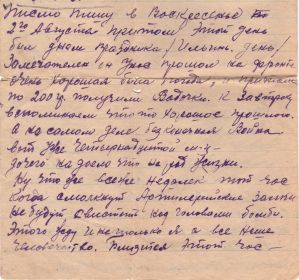 Письмо пишу в Воскресенье
2го Августа притом этот день
был днем праздника /Ильин день/
Замечателен он уже прошол на фронте
очень хорошая была погода, и привезли
по 200 гр. получили Водочки. К Завтраку
вспоминаем что то хорошое прошлого.
А на самом деле безконечная Война
вот уже четырнадцатый м-ц
до чего надоело что не рад жизни.
Ну что же все же недалек тот час
когда смолкнут Артиллерийские залпы
не будут свистеть над головами бомбы.
Этого жду и не только я а все наше
человечество. Близится этот час-